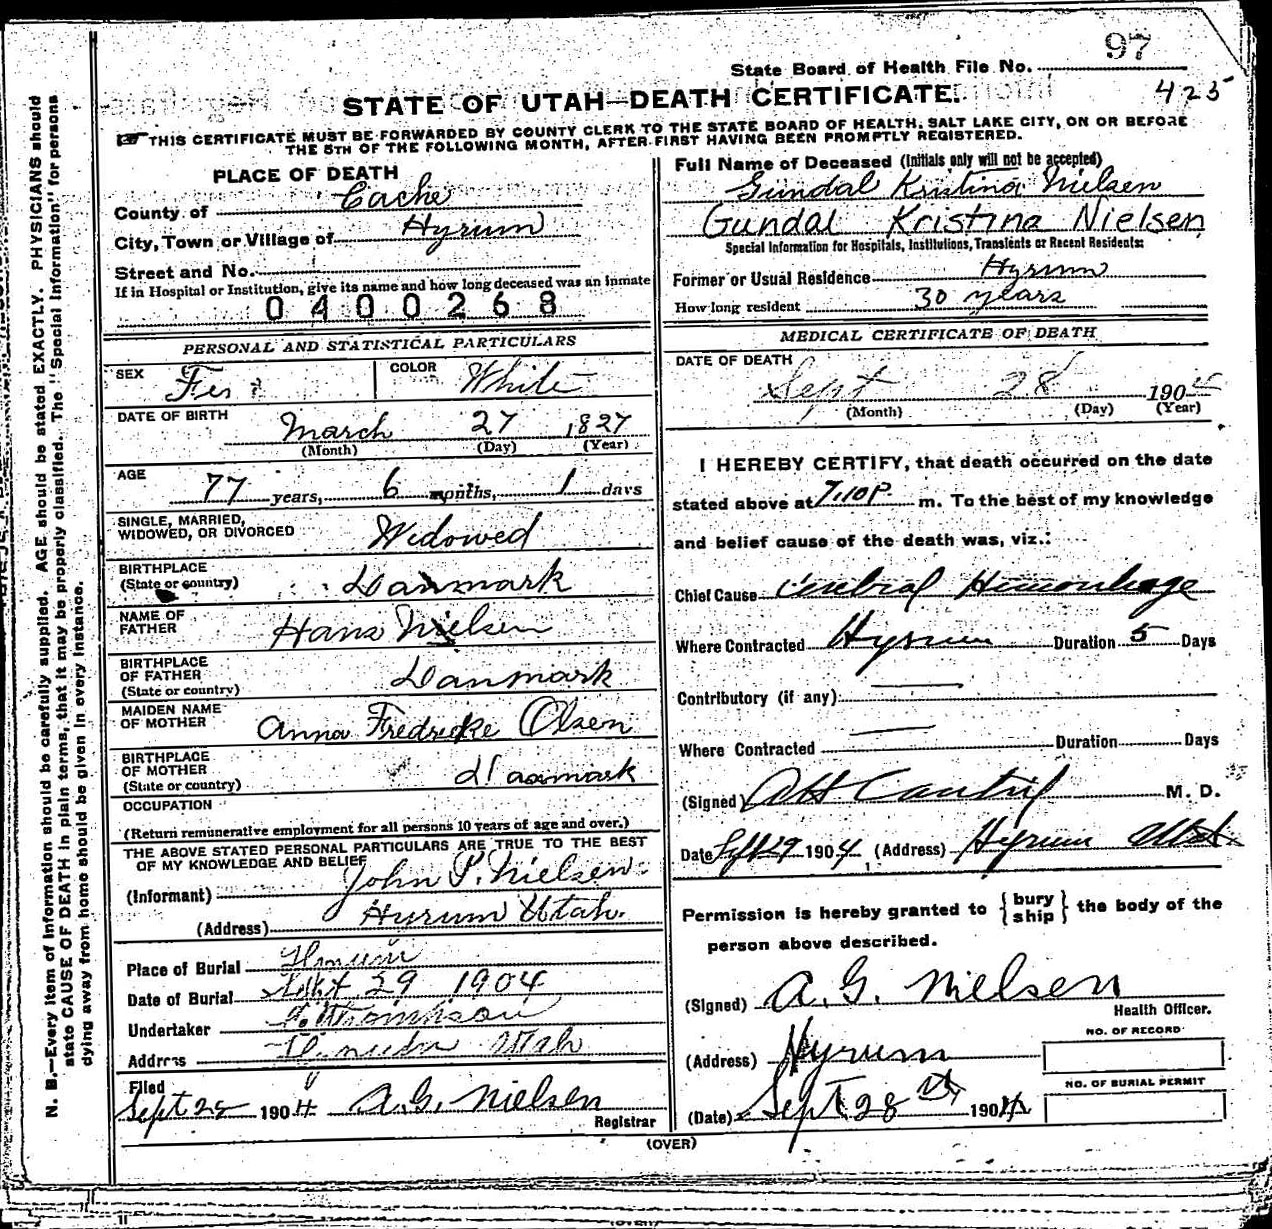 97
State Board of Health File No.
425
STATE OF UTAH—DEATH CERTIFICATE.
THIS CERTIFICATE MUST BE FORWARDED BY COUNTY CLERK TO THE STATE BOARD OF HEALTH, SALT LAKE CITY, ON OR BEFORE
THE 5TH OF THE FOLLOWING MONTH, AFTER FIRST HAVING BEEN PROMPTLY REGISTERED.
PLACE OF DEATH
County of Cache
City, Town or Village of Hyrum
Street and No.
If in Hospital or Institution, give its name and how long deceased was an inmate
0400268
PERSONAL AND STATISTICAL PARTICULARS
SEX COLOR White
DATE OF BIRTH March 27 1827
(Month) (Day) (Year)
AGE 77 years, 6 months, 1 days
SINGLE, MARRIED,
WIDOWED, OR DIVORCED Widowed
BIRTHPLACE
(State or country) Danmark
NAME OF
FATHER Hans Nielsen
BIRTHPLACE
OF FATHER
(State or country) Danmark
MAIDEN NAME
OF MOTHER Anna Fredricke Olsen
BIRTHPLACE
OF MOTHER
(State or country) Danmark
OCCUPATION
(Return remunerative employment for all persons 10 years of age and over.)
THE ABOVE STATED PERSONAL PARTICULARS ARE TRUE TO THE BEST
OF MY KNOWLEDGE AND BELIEF
(Informant) John P. Nielsen
(Address) Hyrum Utah.
Place of Burial Hyrum
Date of Burial Sept 29 1904
Undertaker
Address Utah
Filed
Sept 28 1904 A.G. Nielsen
Registrar
Full Name of Deceased (Initials only will not be accepted)
Gundal Kristina Nielsen
Gundal Kristina Nielsen
Special Information for Hospitals, Institutions, Transients or Recent Residents:
Former or Usual Residence Hyrum
How long resident 30 years
MEDICAL CERTIFICATE OF DEATH
DATE OF DEATH
Sept 28 1904
(Month) (Day) (Year)
I HEREBY CERTIFY, that death occurred on the date
stated above at 7.10 P. m. To the best of my knowledge
and belief cause of the death was, viz.:
Chief Cause Cerebral Hemorrhage
Where Contracted Hyrum Duration 5 Days
Contributory (if any)
Where Contracted Duration Days
(Signed) M. D.
Date Sept 29 1904, (Address) Hyrum Utah
Permission is hereby granted to { bury ship } the body of the
person above described.
(Signed) A.G. Nielsen
Health Officer.
(Address) Hyrum
NO. OF RECORD
NO. OF BURIAL PERMIT
(Date) Sept 28th 1904
(OVER)
N. B.—Every item of information should be carefully supplied. AGE should be stated EXACTLY. PHYSICIANS should
state CAUSE OF DEATH in plain terms, that it may be properly classified. The "Special Information" for persons
dying away from home should be given in every instance.